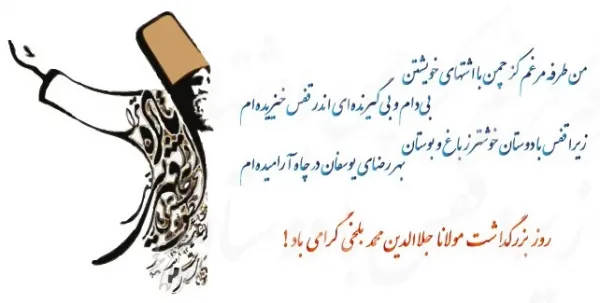 من طرفه مرغم کز چمن با اشتهای خویشتن
بی دام و بی گیرنده ای اندر قفس خیزیده ام
زیرا قفس با دوستان خوشتر ز باغ و بوستان
بهر رضای یوسفان در چاه آرامیده ام
روز بزرگداشت مولانا جلاالدین محمد بلخی گرامی باد!